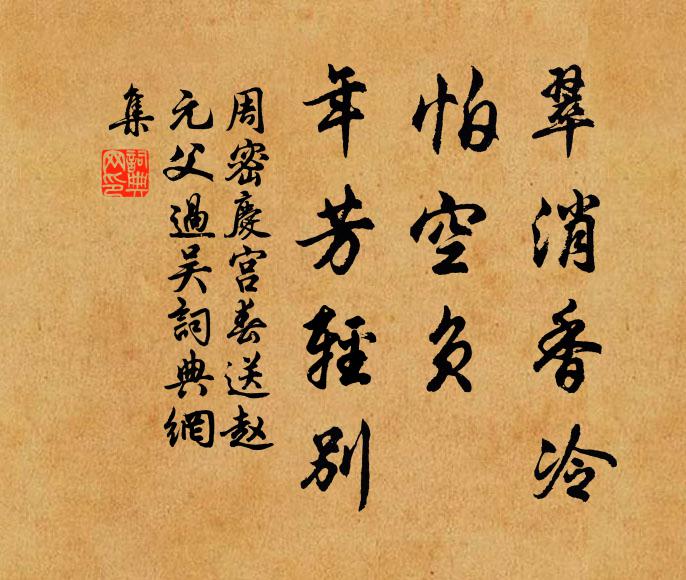 翠消香冷
怕空负
年芳輕别
周密慶宫春送赵
元父過吴詞典網
集
詞典
网印